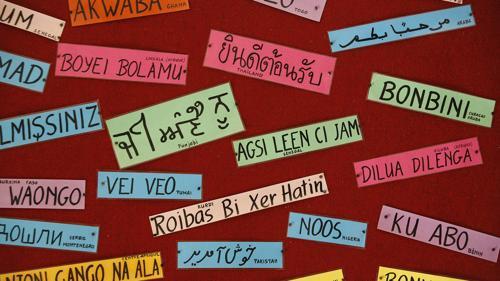 AKWABA
GHANA
TOGO
UM
SENEGAL
مرحبا بكم
ARABA
BOYEI BOLAMU
LINGALA (CONGO)
ยินดีต้อนรับ
THAILAND
MAD
BONBINI
CURACAO
ARUBA
LMIŞSINIZ
ਜੀ ਆਇਆਂ ਨੂੰ
Punjabi
AGSI LEEN CI JAM
SENEGAL
DILUA DILENGA
BURKINA FASO
WAONGO
VEI VEO
KURDI
Roibas Bi Xer Hatin
KU ABO
BÉNIN
ДОШЛИ
SERBIO
MONTENEGRO
NOOS
NIGERIA
خوش آمدید
PAKISTAN
NTONI GANGO NA ALA